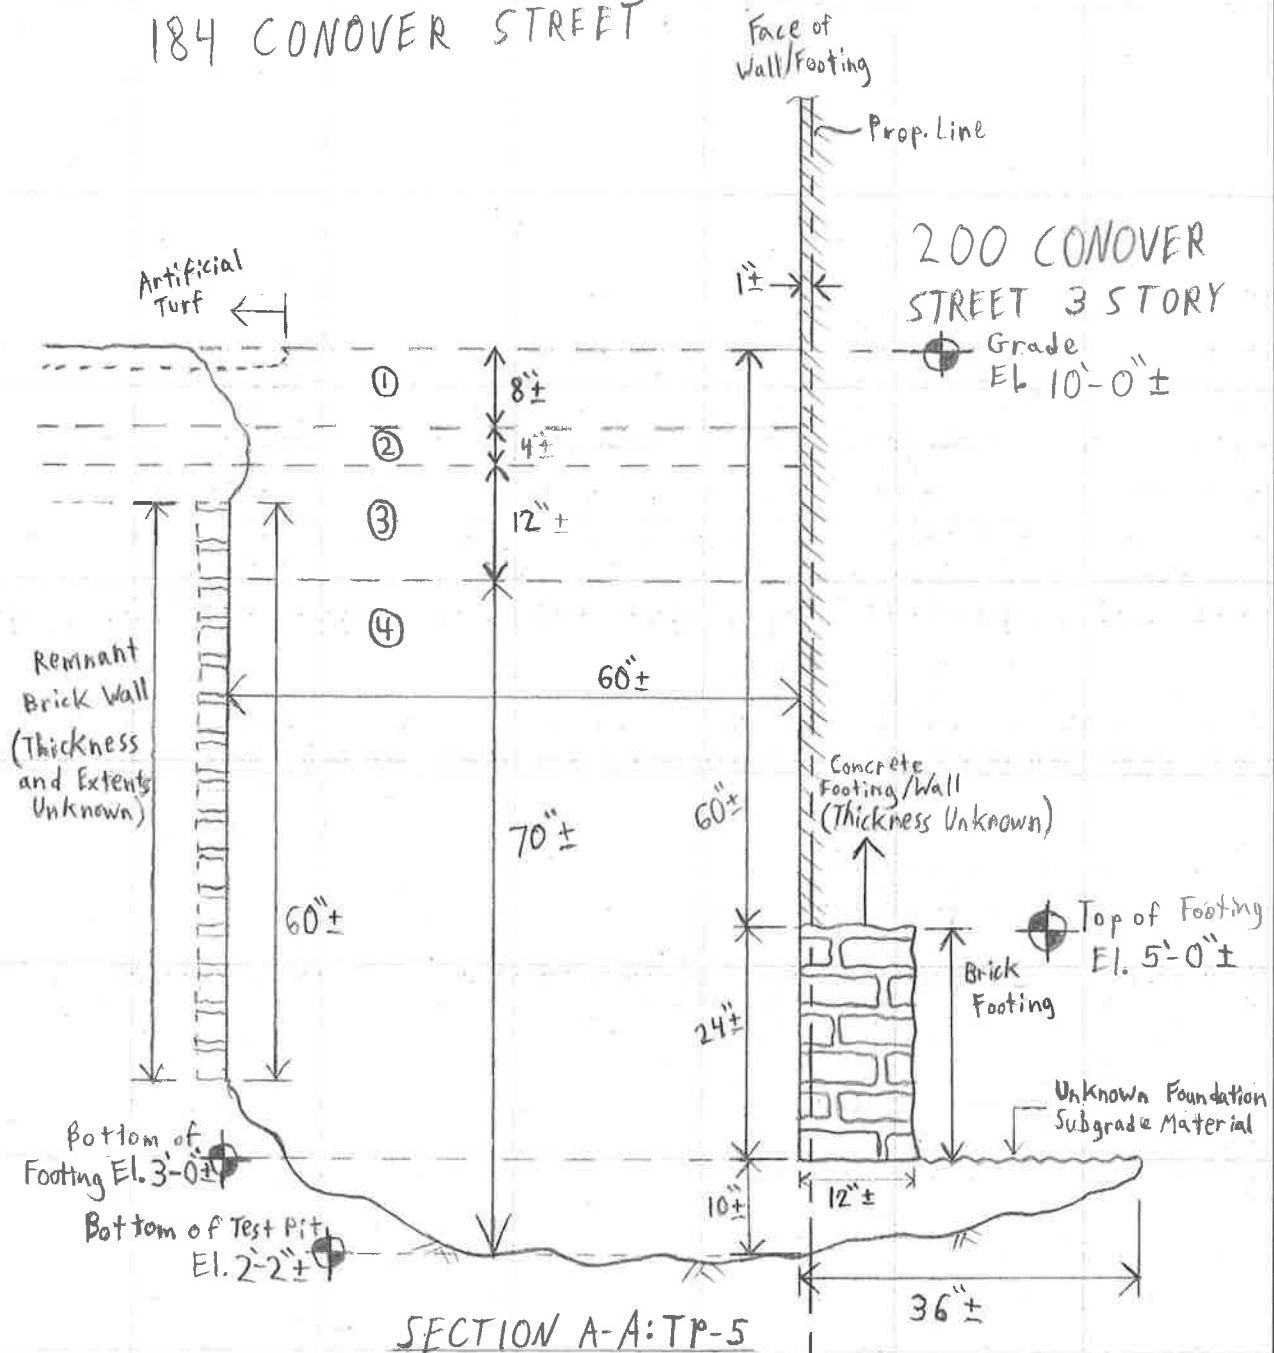 184 CONOVER STREET
Face of
Wall/Footing
Prop. Line
200 CONOVER
STREET 3 STORY
Artificial
Turf
1"±
Grade
El. 10'-0"±
①
8"±
②
4"±
③
12"±
④
Remnant
Brick Wall
(Thickness
and Extents
Unknown)
60"±
60"±
70"±
60"±
Concrete
Footing/Wall
(Thickness Unknown)
Top of Footing
El. 5'-0"±
Brick
Footing
24"±
Unknown Foundation
Subgrade Material
Bottom of
Footing El. 3'-0"±
10"±
12"±
Bottom of Test Pit
El. 2'-2"±
36"±
SECTION A-A: TP-5